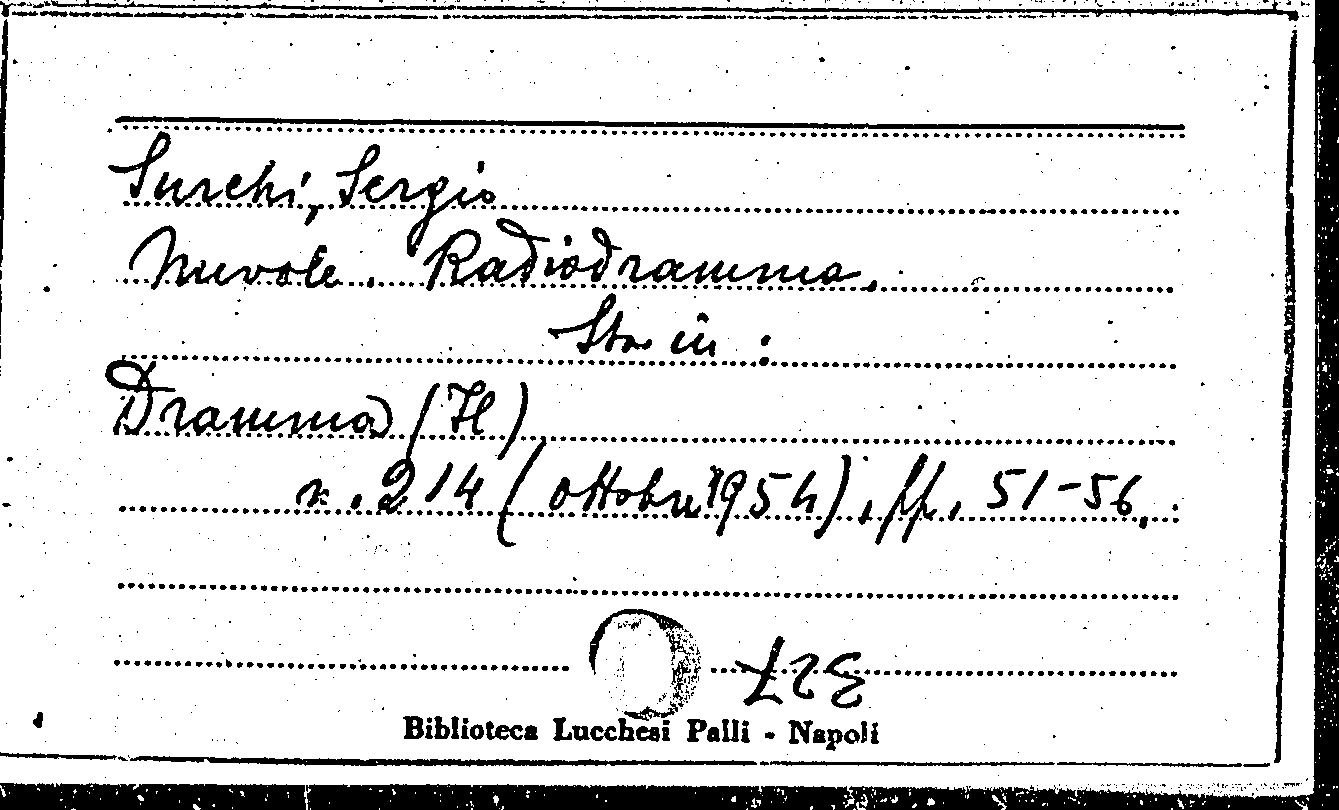 Surchi, Sergio
Nuvole. Radiodramma.
Sta in:
Dramma (Il)
n. 214 (ottobre 1954), pp. 51-56.
327
Biblioteca Lucchesi Palli - Napoli